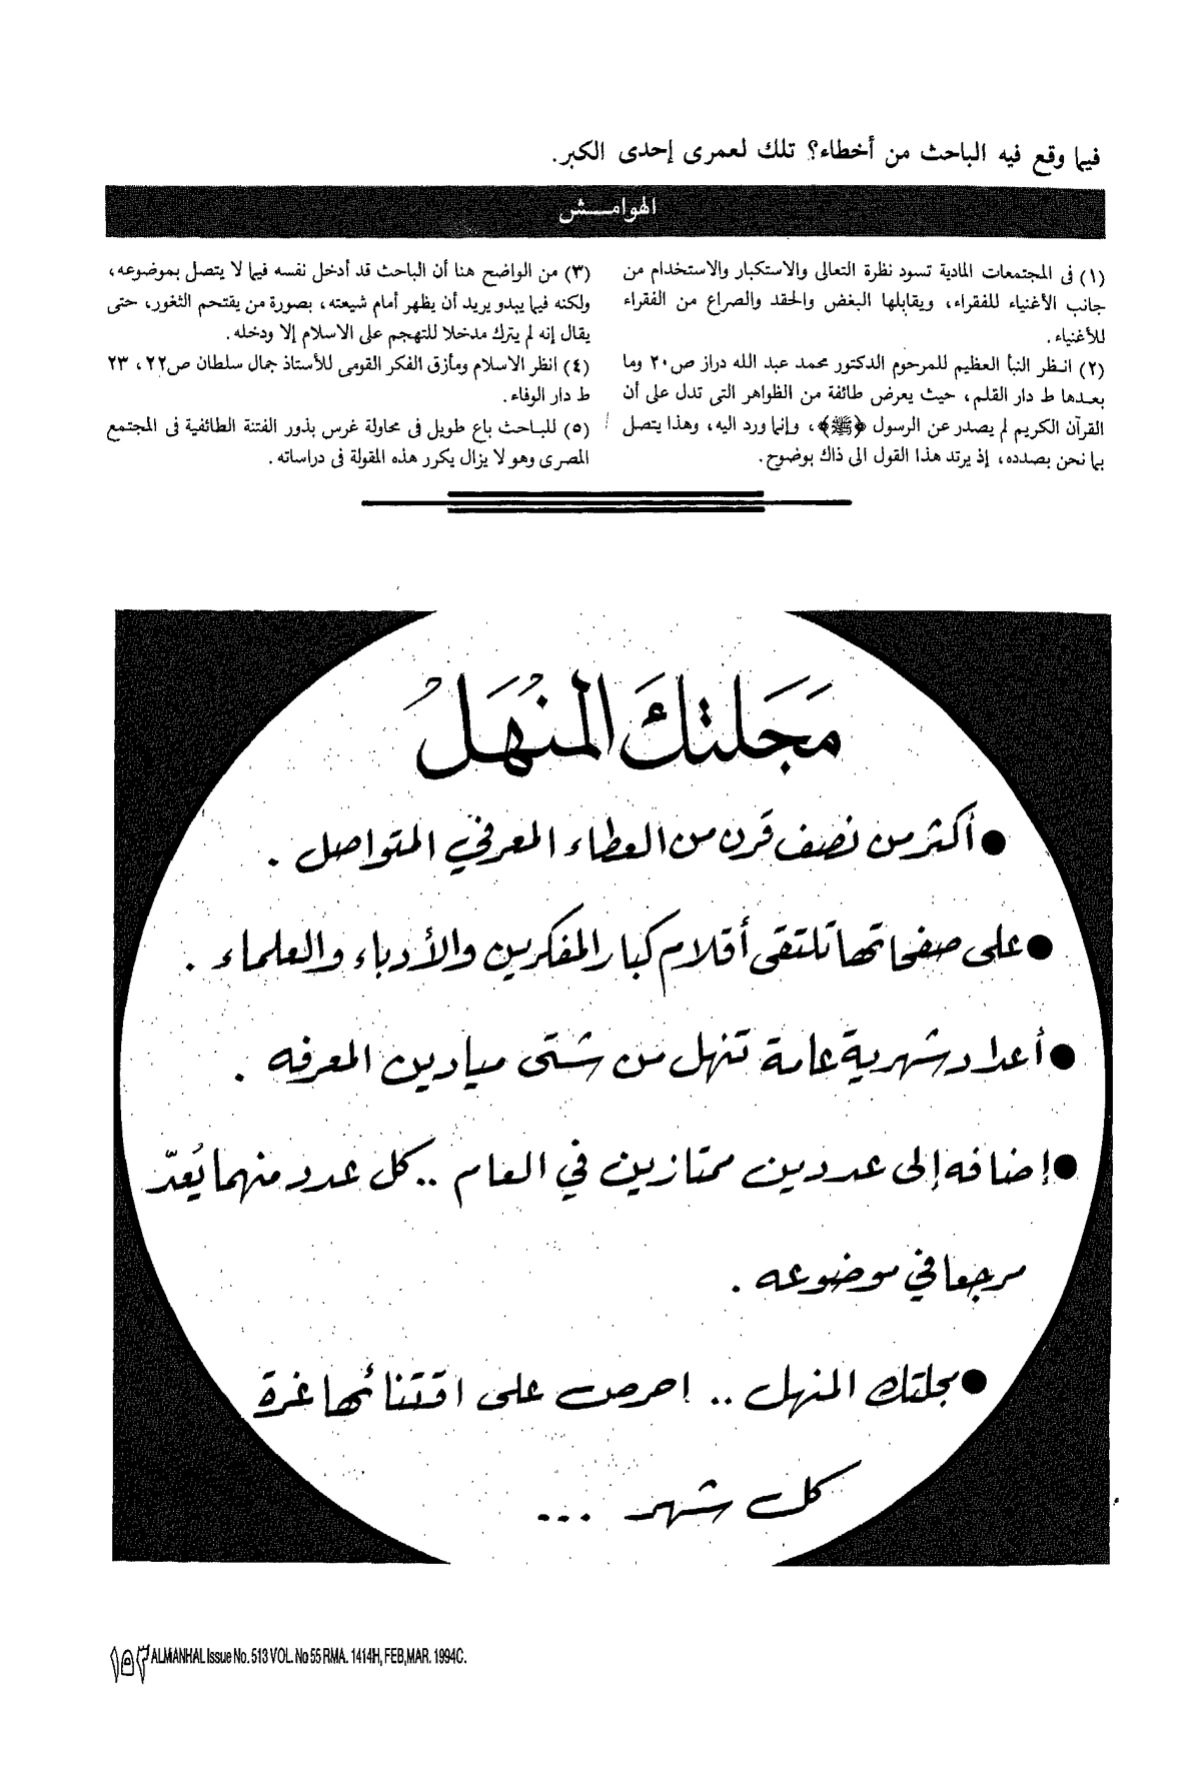 فيما وقع فيه الباحث من أخطاء؟ تلك لعمرى إحدى الكبر.
الهوامــش
(١) فى المجتمعات المادية تسود نظرة التعالى والاستكبار والاستخدام من
جانب الأغنياء للفقراء، ويقابلها البغض والحقد والصراع من الفقراء
للأغنياء.
(٢) انـظر النبأ العظيم للمرحوم الدكتور محمد عبد الله دراز ص٢٠ وما
بعـدها ط دار القلم، حيث يعرض طائفة من الظواهر التى تدل على أن
القرآن الكريم لم يصدر عن الرسول ﴿ﷺ﴾، وإنما ورد اليه، وهذا يتصل
بما نحن بصدده، إذ يرتد هذا القول الى ذاك بوضوح.
(٣) من الواضح هنا أن الباحث قد أدخل نفسه فيما لا يتصل بموضوعه،
ولكنه فيما يبدو يريد أن يظهر أمام شيعته، بصورة من يقتحم الثغور، حتى
يقال إنه لم يترك مدخلا للتهجم على الاسلام إلا ودخله.
(٤) انظر الاسلام ومأزق الفكر القومى للأستاذ جمال سلطان ص٢٢، ٢٣
ط دار الوفاء.
(٥) للبـاحث باع طويل فى محاولة غرس بذور الفتنة الطائفية فى المجتمع
المصرى وهو لا يزال يكرر هذه المقولة فى دراساته.
مَجَلتكَ المنُهَلُ
● أكثر من نصف قرن من العطاء المعرفي المتواصل .
● على صفحاتها تلتقى أقلام كبار المفكرين والأدباء والعلماء .
● أعداد شهرية عامة تنهل من شتى ميادين المعرفه .
● إضافه إلى عددين ممتازين في العام .. كل عدد منهما يُعدّ
مرجعا في موضوعه .
● مجلتك المنهل .. احرص على اقتنائها غرة
كل شهر ...
١٥٣ ALMANHAL Issue No. 513 VOL. No 55 RMA. 1414H, FEB,MAR. 1994C.